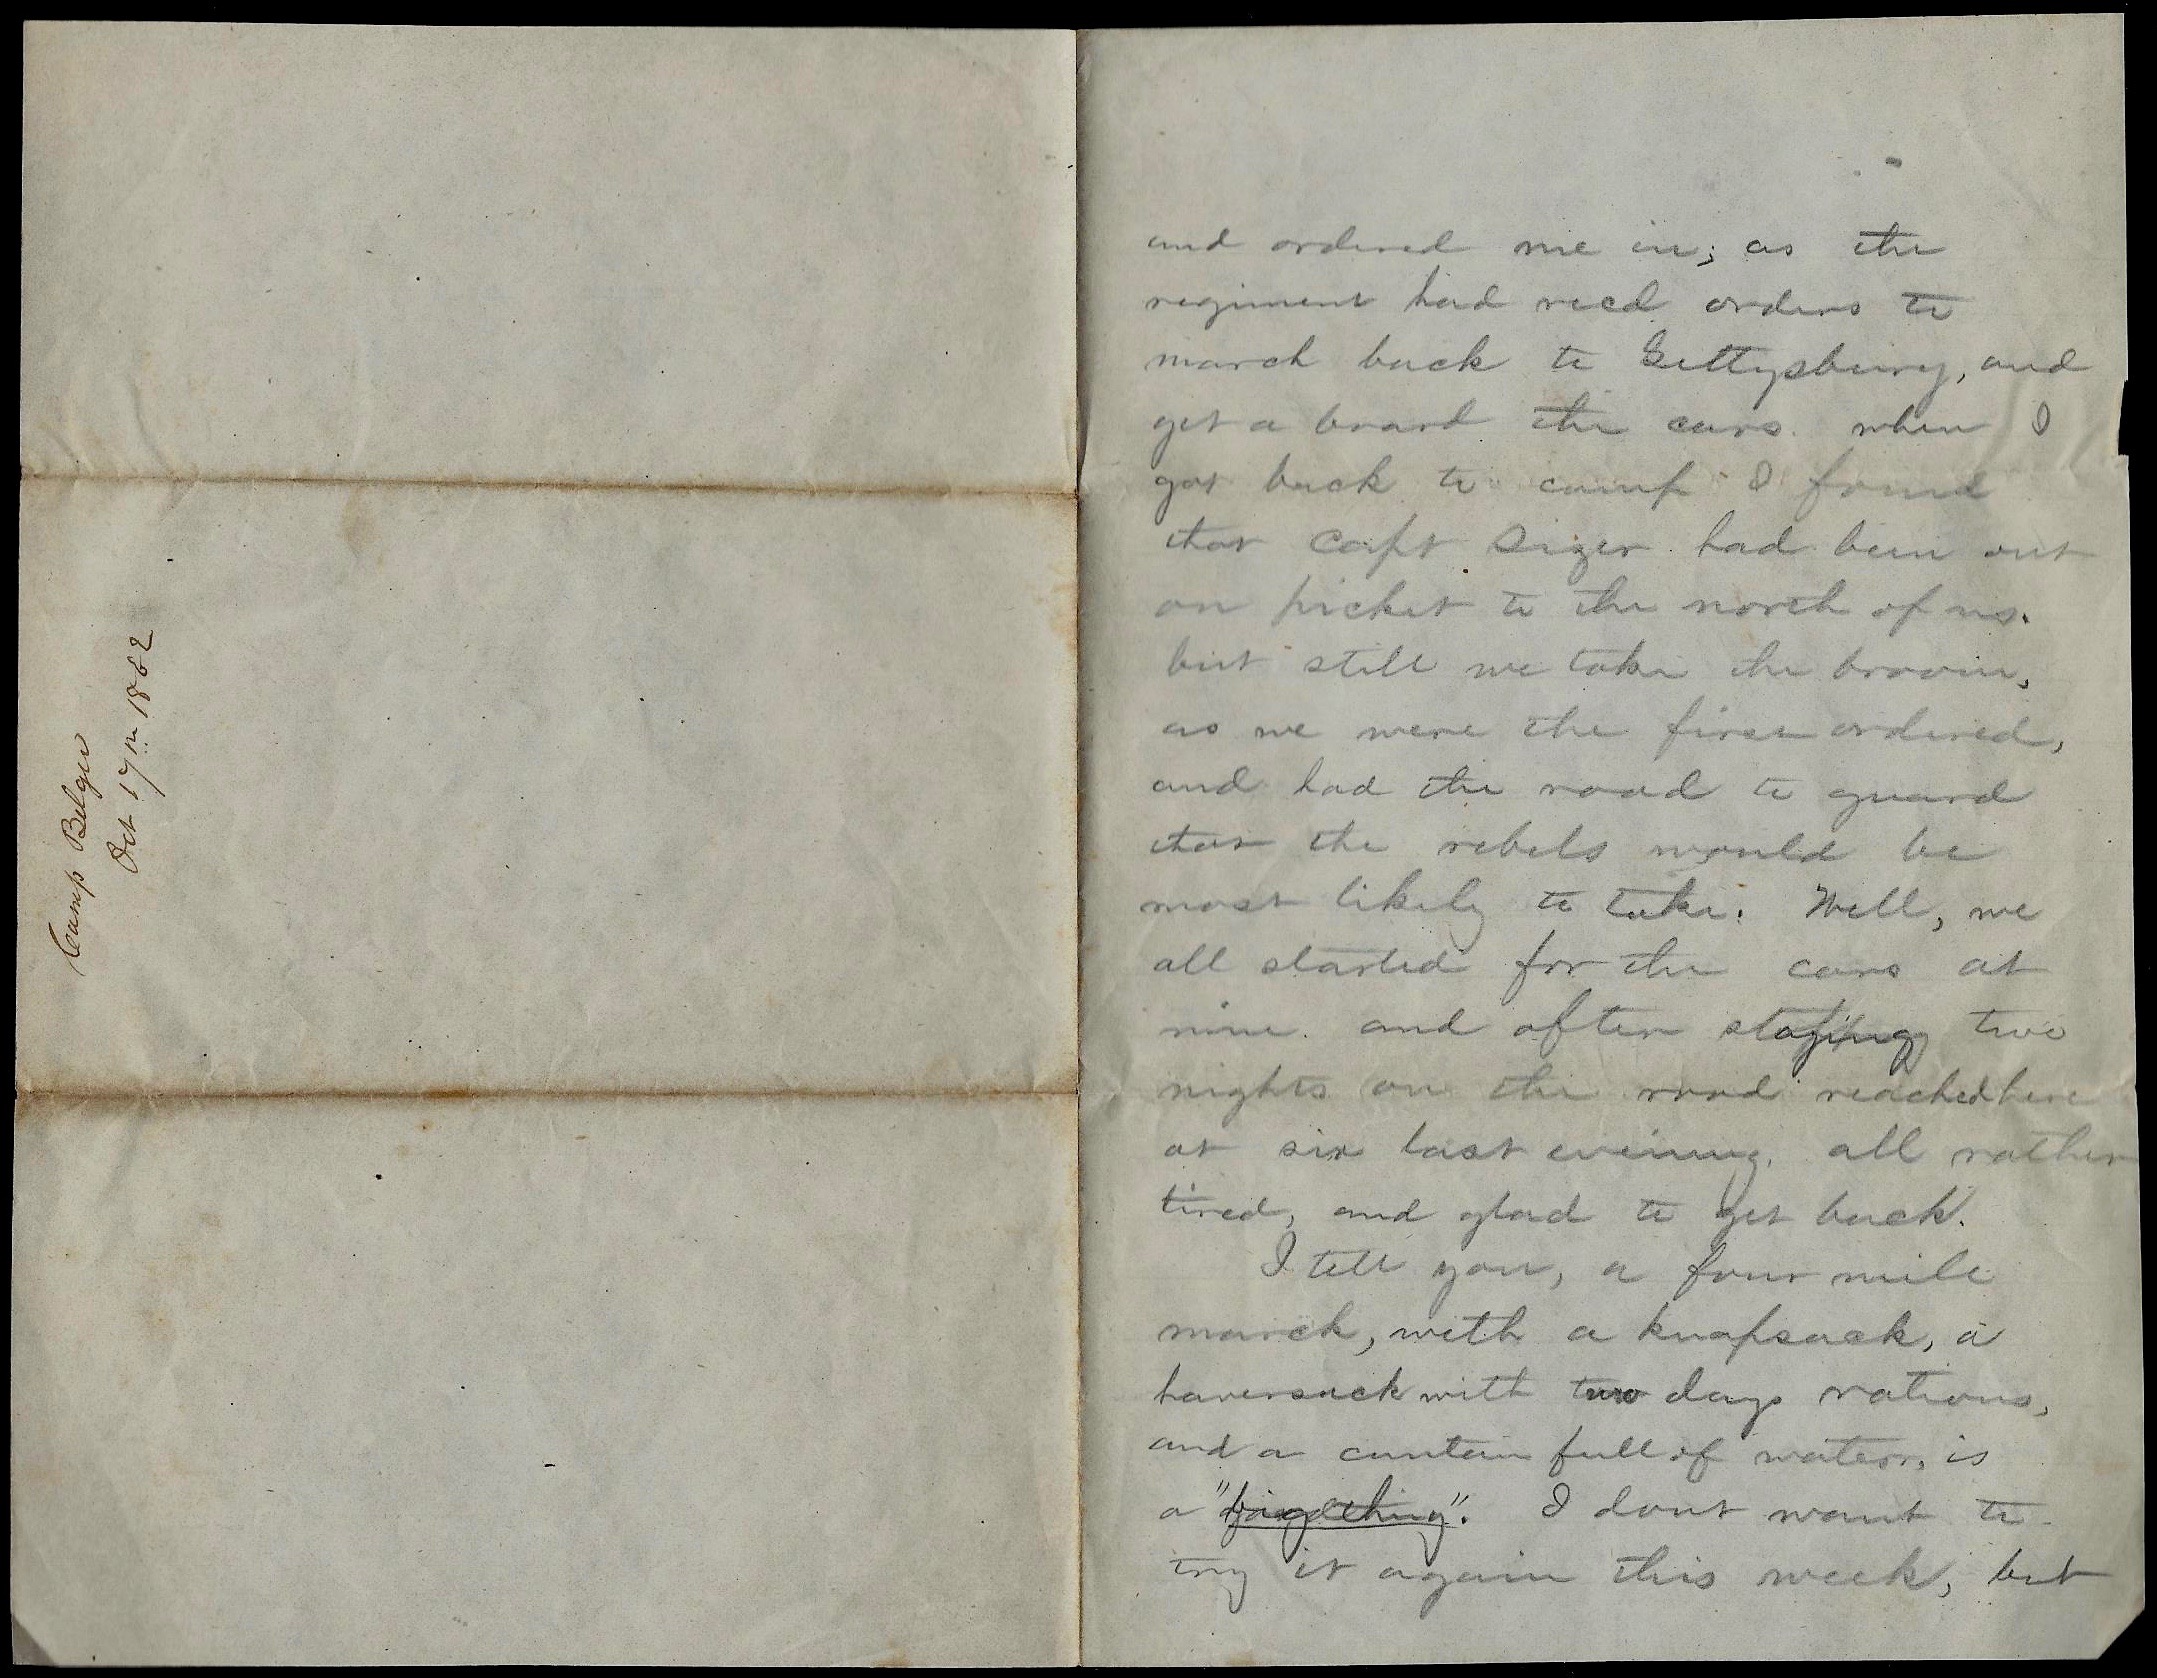 Camp Belger
Oct 17th 1862
and ordered me in; as the
regiment had recd orders to
march back to Gettysburg, and
get a board the cars. when I
got back to camp I found
that Capt Sizer had been out
on picket to the north of us.
but still we take the
as we were the first ordered,
and had the road to guard
that the rebels would be
most likely to take. Well, we
all started for the cars at
nine. and after staying two
nights on the road reached here
at six last evening, all rather
tired, and glad to get back.
I tell you, a four mile
march, with a knapsack, a
haversack with two days rations,
and a canteen full of water, is
a "big thing". I dont want to
try it again this week, but